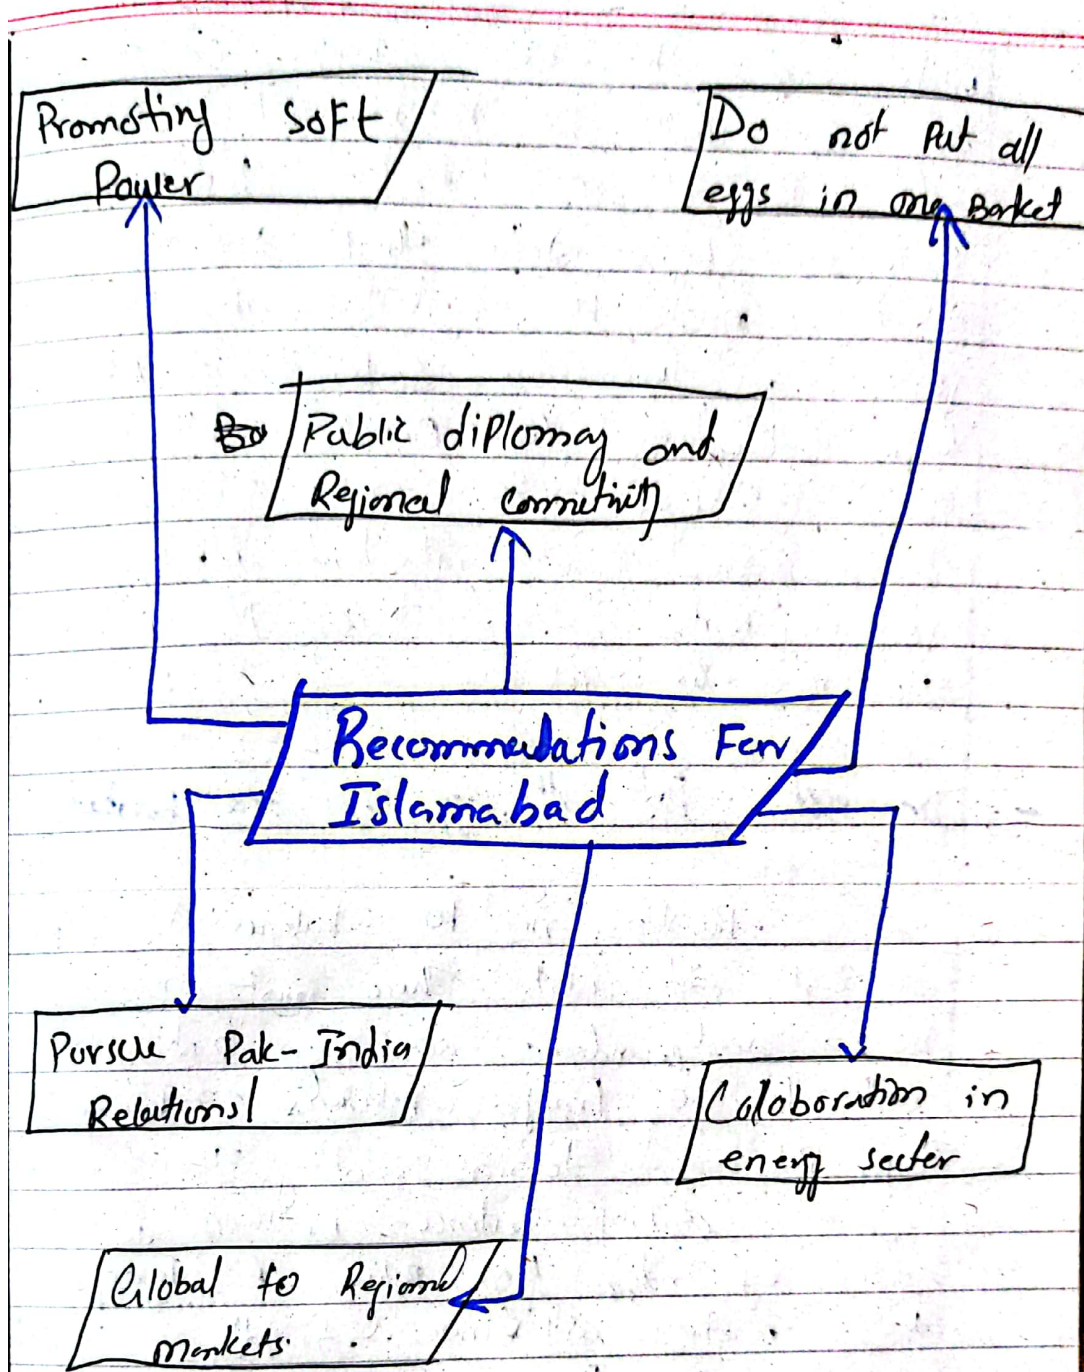 Promoting Soft
Power
Do not Put all
eggs in one Basket
Public diplomacy and
Regional connectivity
Recommendations For
Islamabad
Pursue Pak-India
Relations
Colaboration in
energy sector
Global to Regional
Markets.